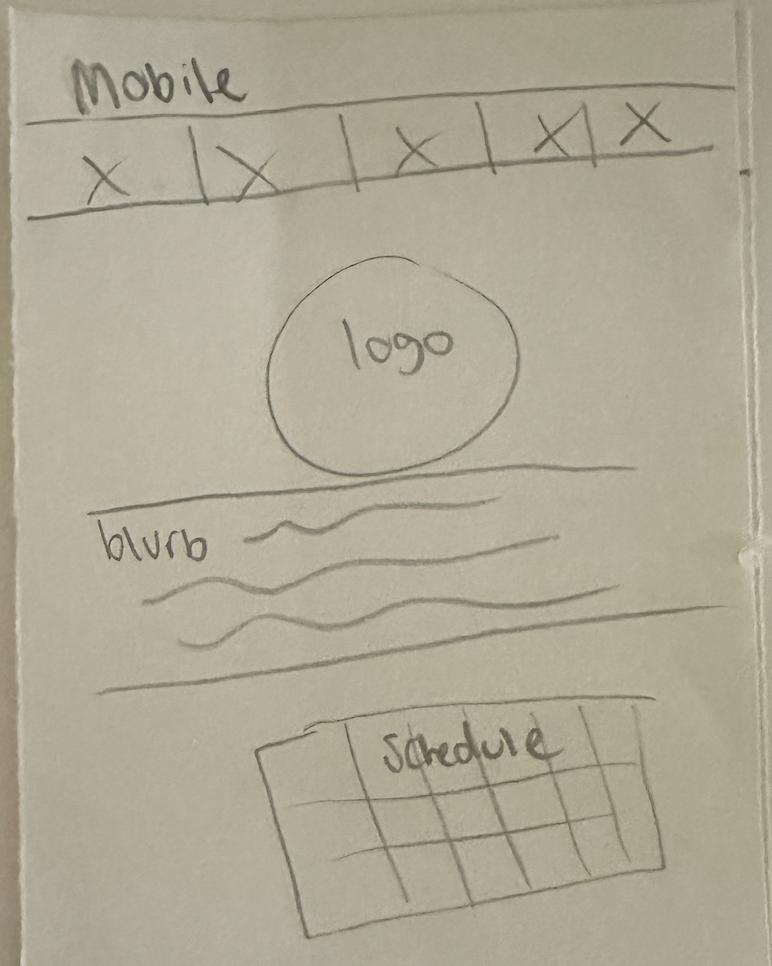 Mobile
X X X X X
logo
blurb
Schedule